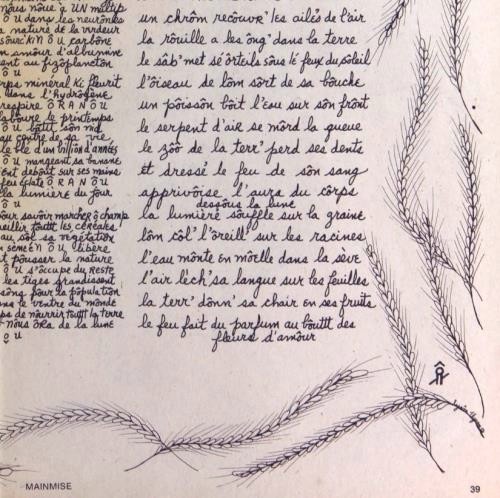 nous noue a UN multip
ô U dans les neurônes
a nature de la verdeur
ô U carbône
n smour d'albumine
ent au fizoplancton
ô U
rps minéral ki fleurit
dans l'hydrogène
respire Ô R A N Ô U
laboure le printemps
ô U bâtit son nid
au centre de sa vie
le blé d'un billion d'années
ô U mangeant sa banane
ent debout sur ses mains
feu éclate Ô R A N Ô U
la lumière du jour
ô U
pour savoir marcher ô champ
eillir toutt les céréales
au sol sa végétation
n semeen Ô U libère
t pousser la nature
ô U s'occupe du reste
les tiges grandissent
song pour la population
ans le ventre du monde
ps de nourrir toutt la terre
nous ôrla de la lune
ô U
un chrôm recouvr' les ailes de l'air
la rouille a les ong' dans la terre
le sâb' met sé orteils sous lé feux du soleil
l'ôiseau de lôm sort de sa bouche
un pôisson bôit l'eau sur son frônt
le serpent d'air se môrd la queue
le zôo de la terr' perd ses dents
ét dressé le feu de son sang
apprivôise l'aura du côrps
dessous la lune
la lumière souffle sur la graine
lôm côl' l'oreill' sur les racines
l'eau monte en môelle dans la sève
l'air lèch' sa langue sur les feuilles
la terr' donn' sa chair en ses fruits
le feu fait du parfum au bôutt des
fleurs d'amôur
MAINMISE
39